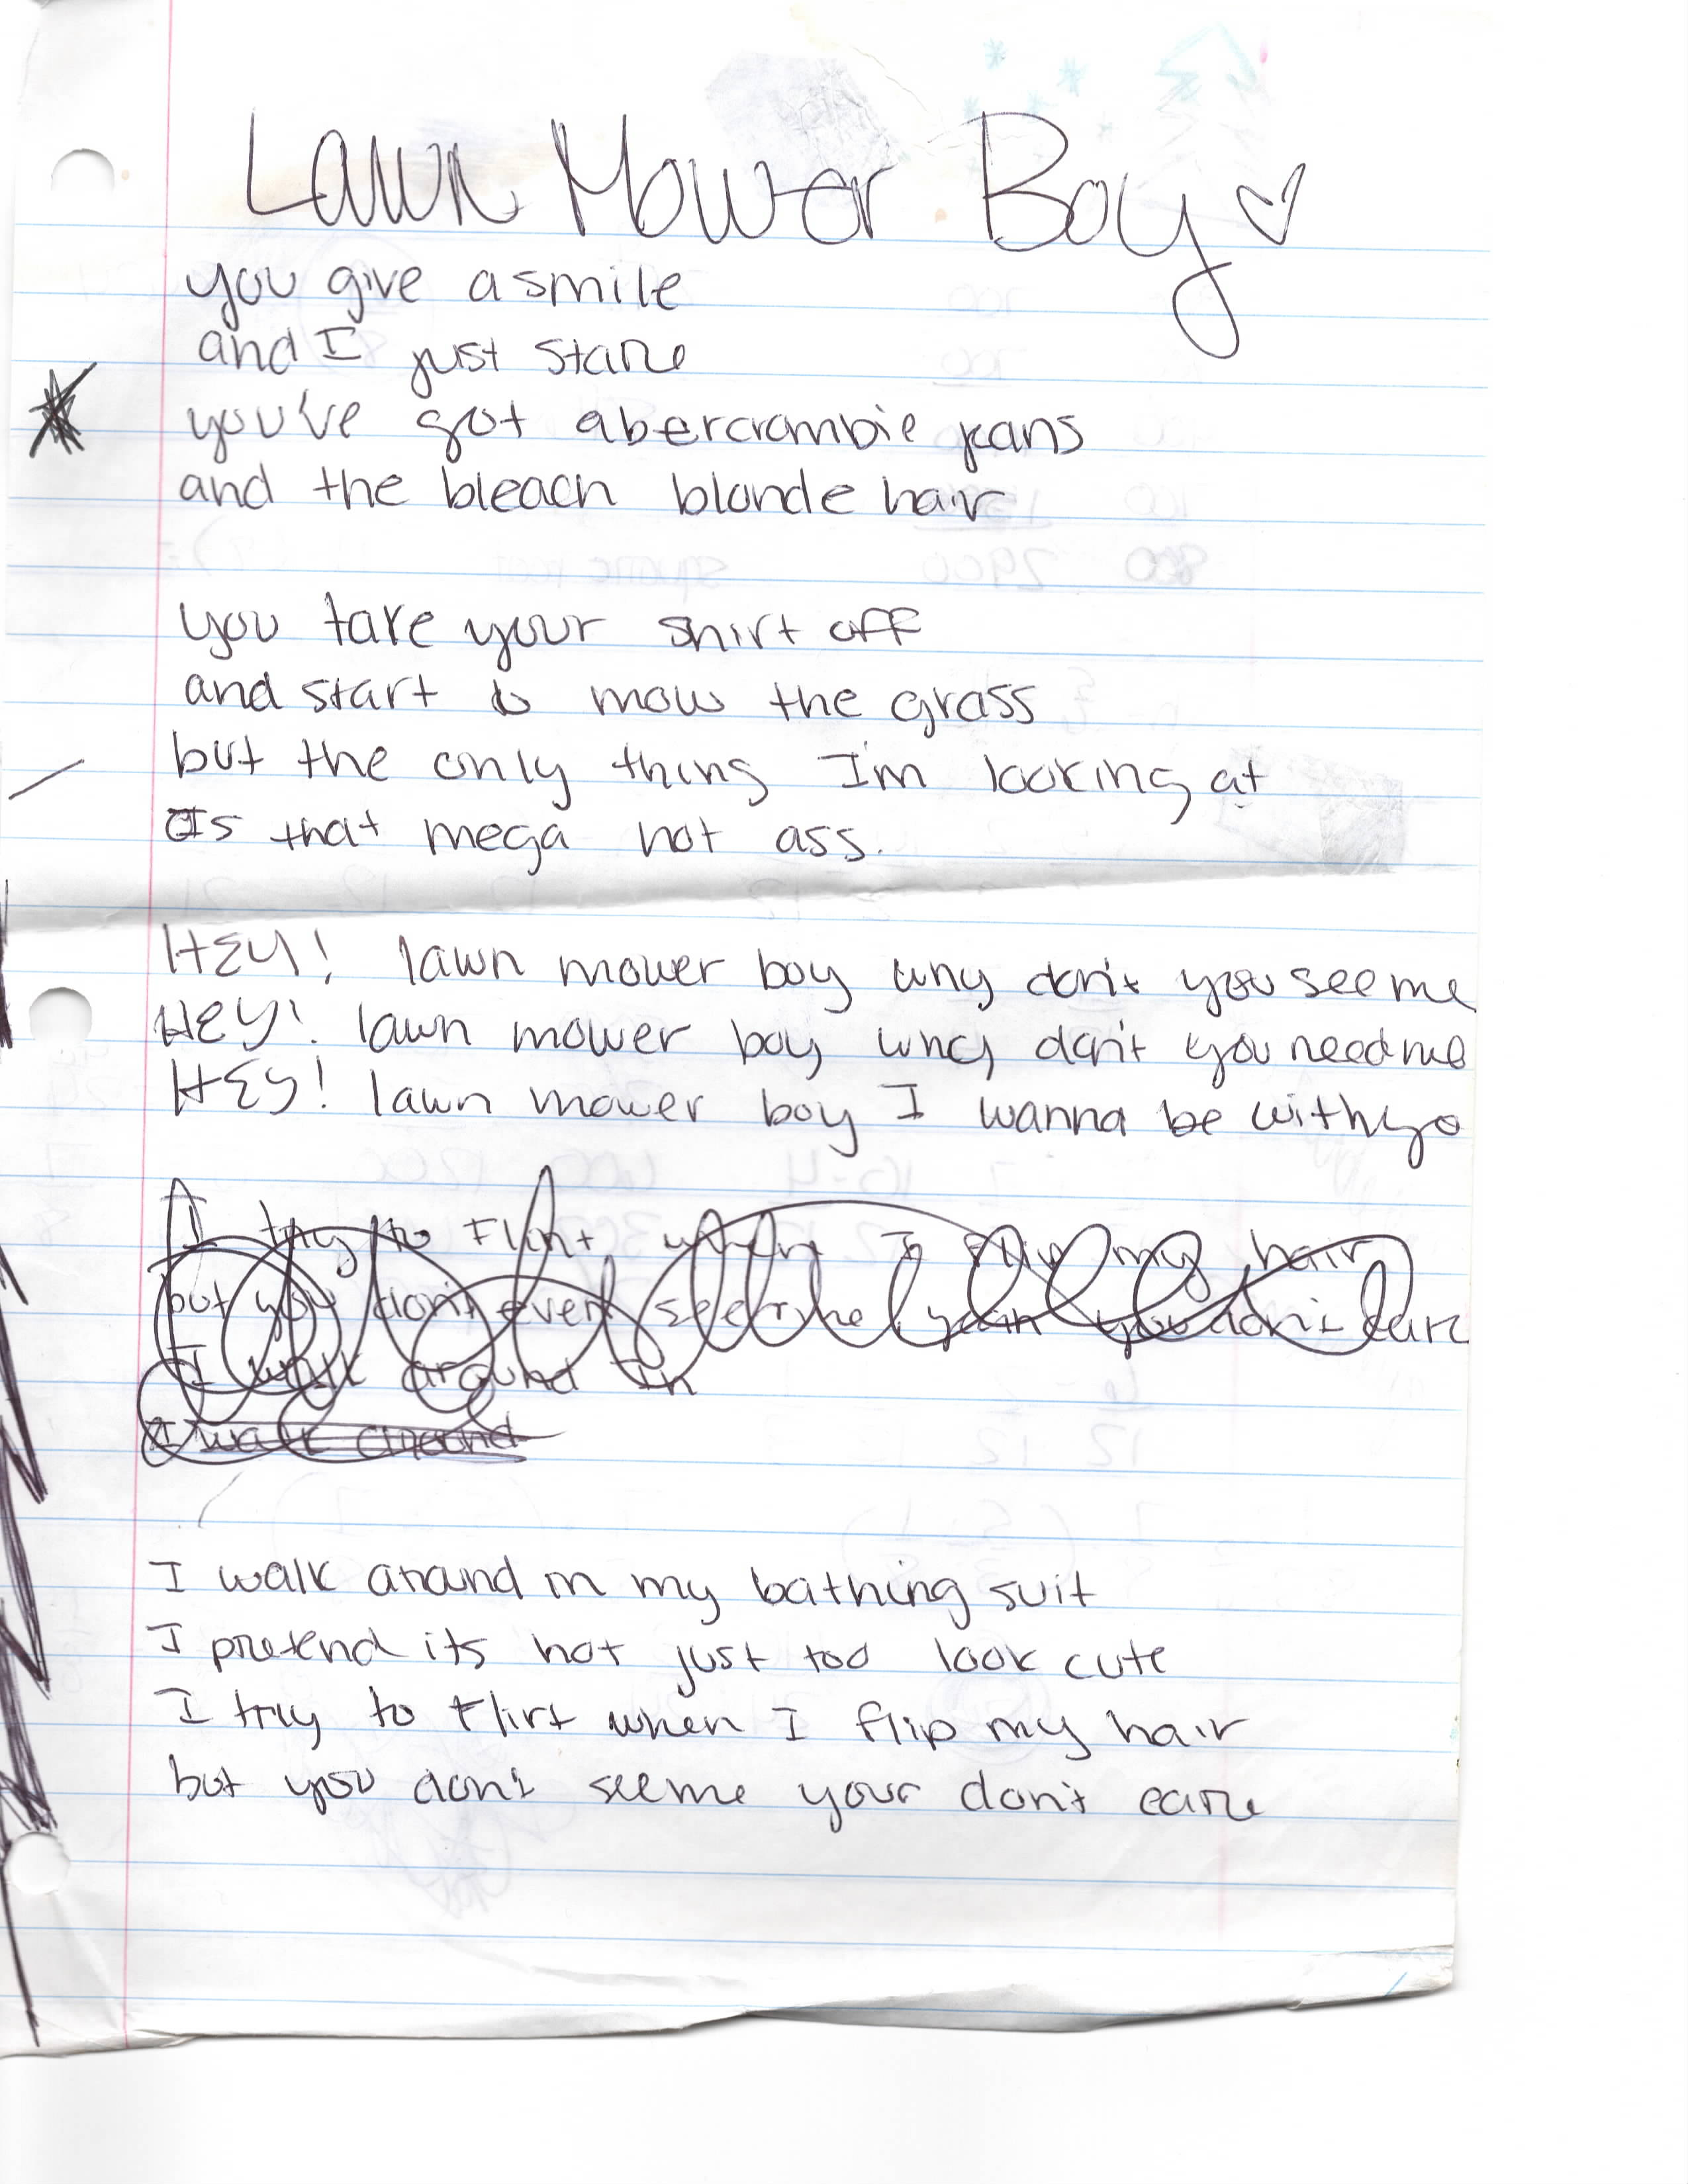 Lawn Mower Boy ♡
you give a smile
and I just stare
you've got abercrombie jeans
and the bleach blonde hair
you take your shirt off
and start to mow the grass
but the only thing I'm looking at
Is that mega hot ass.
HEY! lawn mower boy why don't you see me
HEY! lawn mower boy why don't you need me
HEY! lawn mower boy I wanna be with yo
I try to flirt, when I flip my hair
but you don't even see me yeah you don't care
I walk around in
I walk around
I walk around in my bathing suit
I pretend its hot just too look cute
I try to flirt when I flip my hair
but you don't see me your don't care